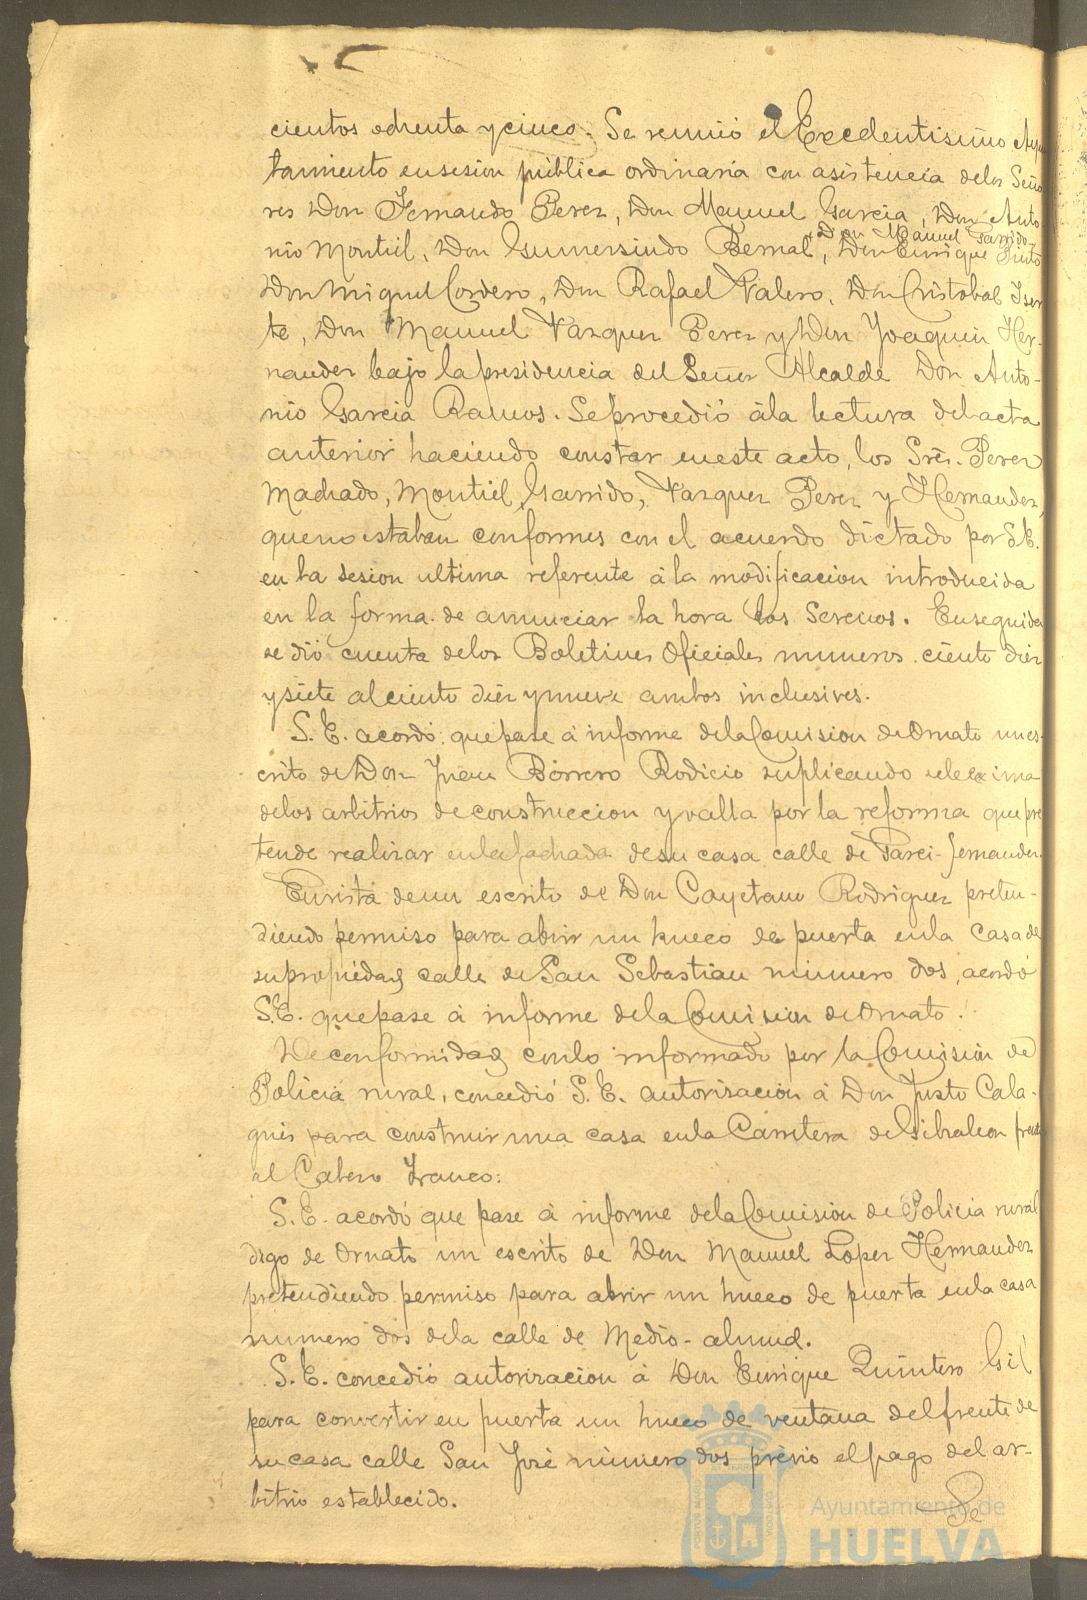 cientos ochenta y cinco. Se reunió el Excelentisimo Ayun
tamiento en sesion pública ordinaria con asistencia de los Seño
res Don Fernando Perez, Don Manuel Garcia, Don Anto
Don Manuel Garrido
nio Montiel, Don Gumersindo Bernal, Don Enrique
Don Miguel Cordero, Don Rafael Valero, Don Cristobal Iser
te, Don Manuel Vazquez Perez y Don Joaquin Her-
nandez bajo la presidencia del Señor Alcalde Don Anto-
nio Garcia Ramos. Se procedió á la lectura del acta
anterior haciendo constar en este acto, los Srēs. Perez
Machado, Montiel, Garrido, Vazquez Perez y Hernandez,
que no estaban conformes con el acuerdo dictado por S.E.
en la sesion ultima referente á la modificacion introducida
en la forma de anunciar la hora los Serenos. Enseguida
se dió cuenta de los Boletines Oficiales numeros ciento diez
y siete al ciento diez y nueve ambos inclusives.
S. E. acordó que pase á informe de la Comision de Ornato un es-
crito de Don Juan Borrero Rodicio suplicando se le exima
de los arbitrios de construccion y valla por la reforma que pre
tende realizar en la fachada de su casa calle de Garci-Fernandez.
En vista de un escrito de Don Cayetano Rodriguez preten-
diendo permiso para abrir un hueco de puerta en la casa de
su propiedad calle de San Sebastian número dos, acordó
S.E. que pase á informe de la Comision de Ornato.
De conformidad con lo informado por la Comisión de
Policia rural, concedió S. E. autorizacion á Don Justo Cala-
para construir una casa en la Carretera de Gibraleon frente
al Cabezo Franco:
S. E. acordó que pase á informe de la Comision de Policia rural
digo de Ornato un escrito de Don Manuel Lopez Hernandez
pretendiendo permiso para abrir un hueco de puerta en la casa
numero dos de la calle de Medio-almud.
S. E. concedió autorizacion á Don Enrique Quintero Gil
para convertir en puerta un hueco de ventana del frente de
su casa calle San José número dos prévio el pago del ar-
bitrio establecido.
Se
Ayuntamiento de
HUELVA